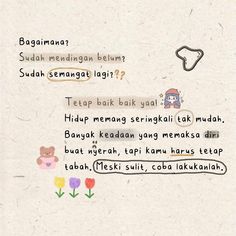 Bagaimana?
Sudah mendingan belum?
Sudah semangat lagi??
Tetap baik baik yaa!
Hidup memang seringkali tak mudah.
Banyak keadaan yang memaksa diri
buat nyerah, tapi kamu harus tetap
tabah. Meski sulit, coba lakukanlah.